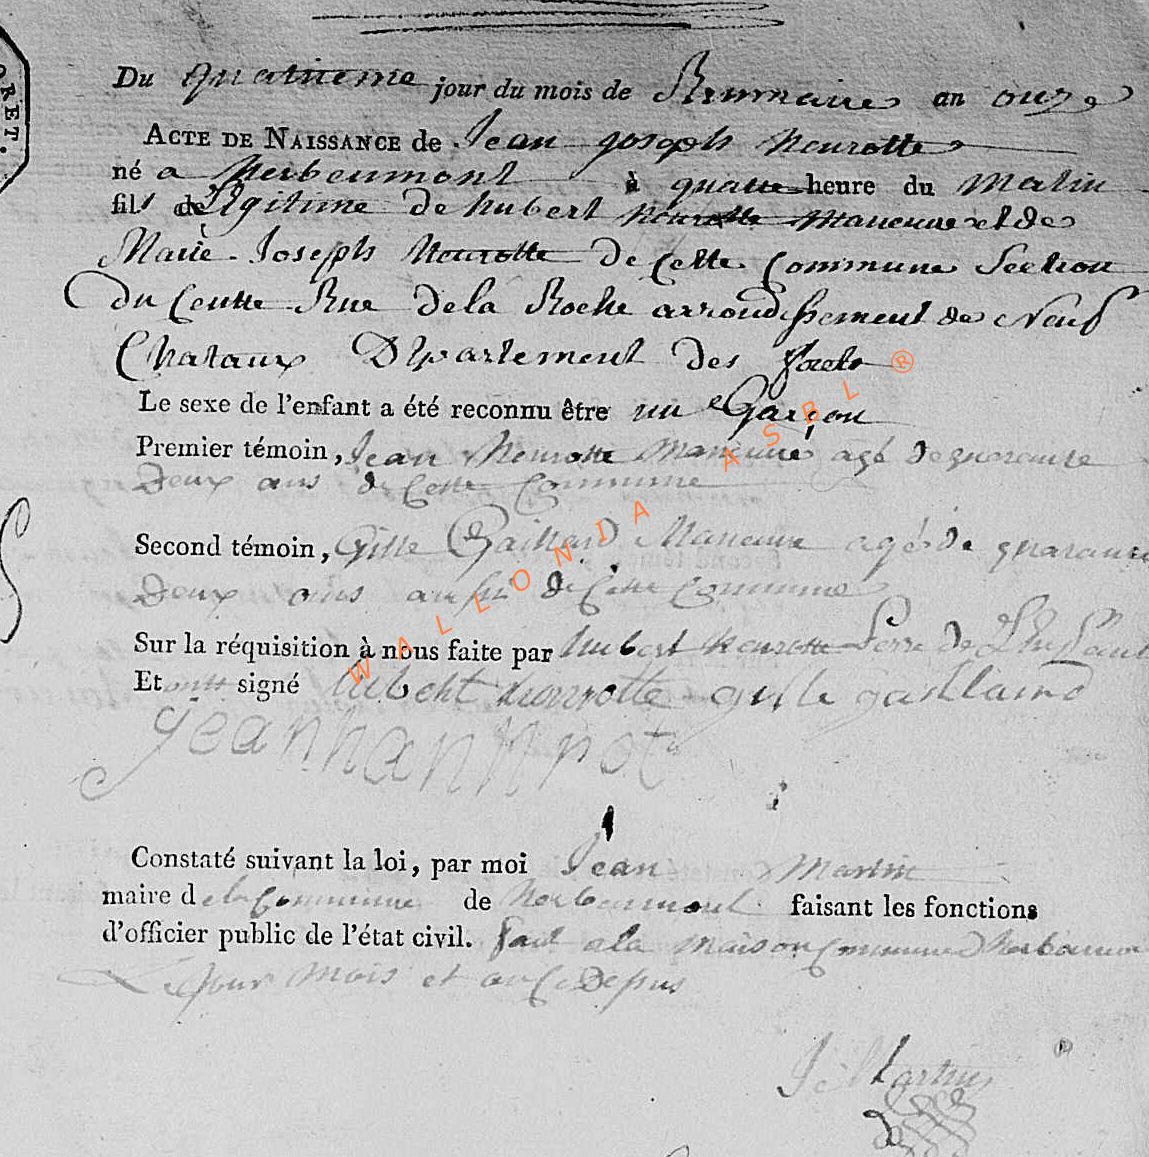 ORET.
Du quatrieme jour du mois de Brumaire an onze
ACTE DE NAISSANCE de Jean joseph Nourotte
né a Herbeumont à quatre heure du Matin
fils de Legitime de hubert Nourotte Maneuve et de
Marie Joseph Nourotte de Cette Commune Section
du Centre Rue de la Roche arrondissement de Neuf
Chataux Departement des forets
Le sexe de l'enfant a été reconnu être un Garçon
Premier témoin, Jean Nourotte Maneuve agé de quarante
Deux ans de Cette Commune
Second témoin, Gille Gaillard Maneuve agé de quarante
deux ans aussi de Cette Commune
Sur la réquisition à nous faite par hubert Nourotte Perre de L'enfant
Et ont signé hubert nourotte gille gaillaird
jean
Constaté suivant la loi, par moi Jean Martin
maire de la Commune de Herbeumont faisant les fonctions
d'officier public de l'état civil. fait a la Maison Commune d'Herbeumon
Les jour Mois et an Ci Depus
J: Martin
WALLONDA ASBL ®